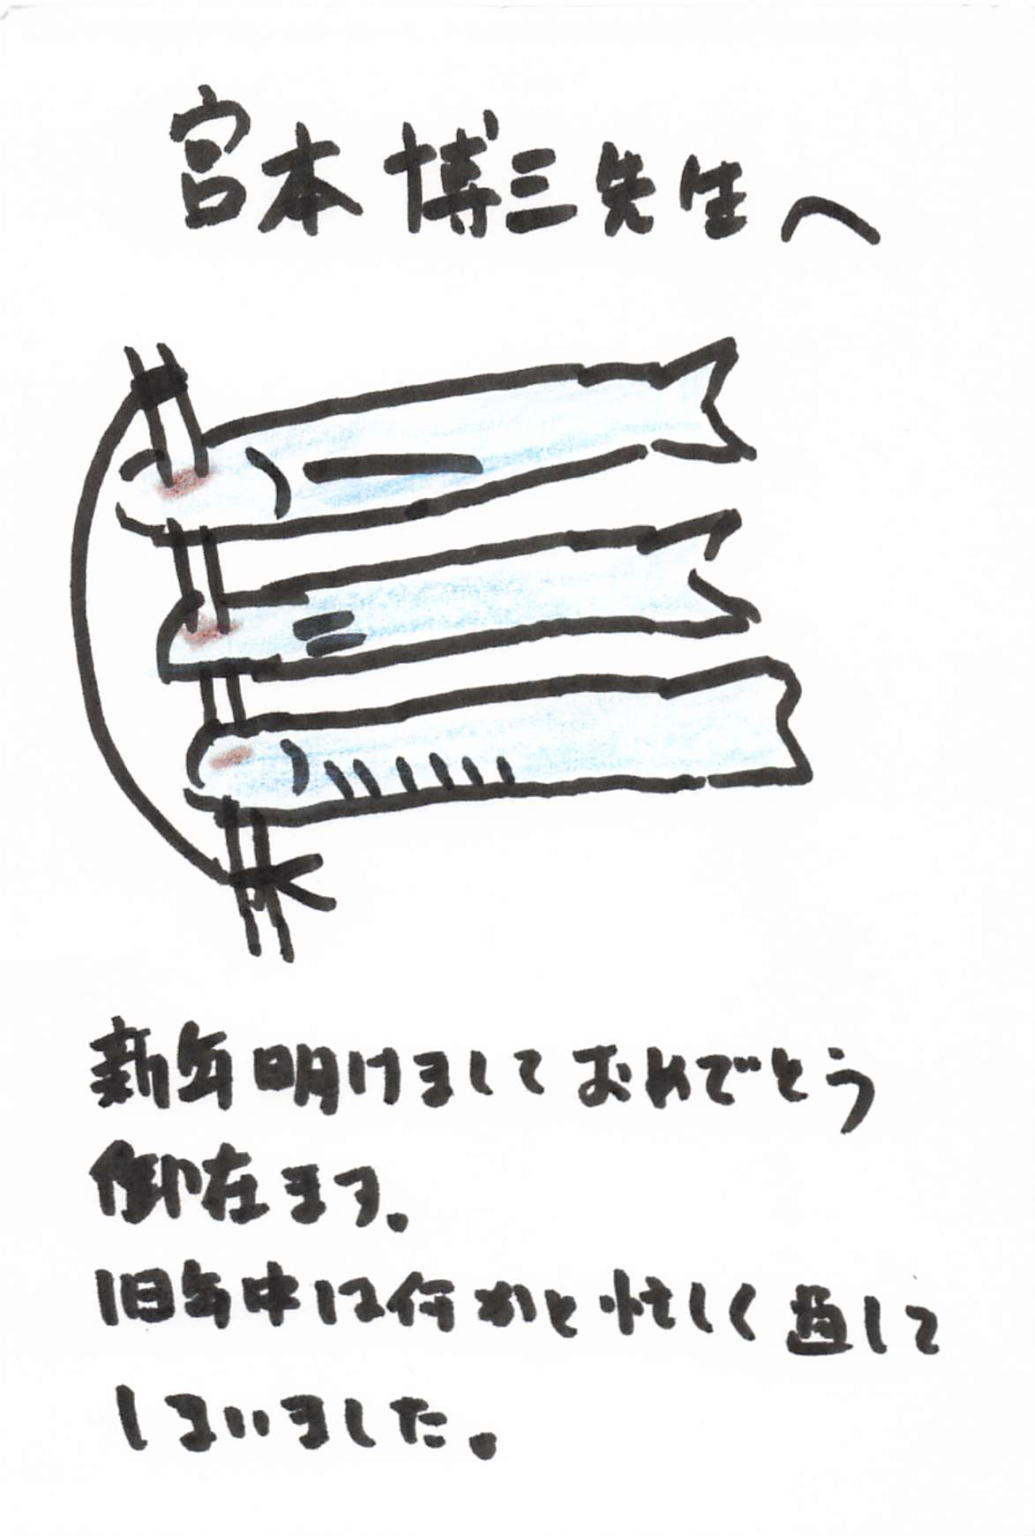 宮本博三先生へ
新年明けましておめでとう
御在ます。
旧年中は何かと忙しく過して
しまいました。